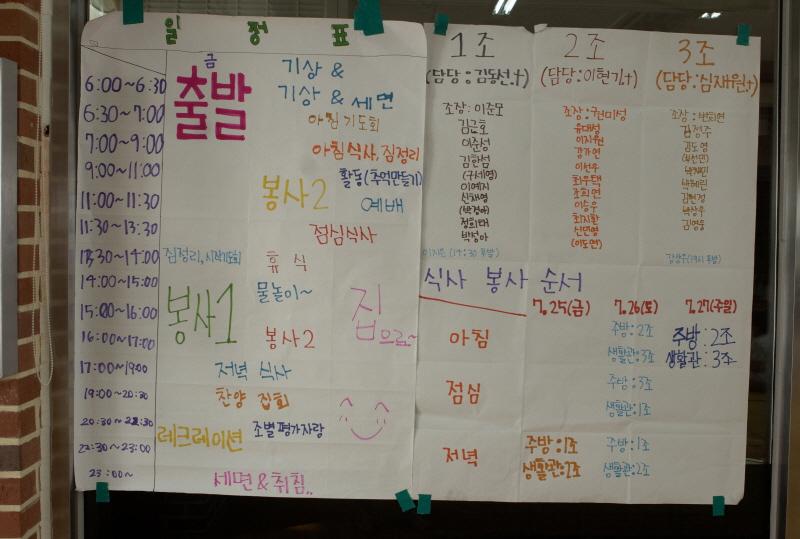 일 정 표
금
출발
6:00~6:30 기상 &
6:30~7:00 기상 & 세면
아침 기도회
7:00~9:00 아침식사, 짐정리
9:00~11:00 봉사2 활동(추억만들기)
11:00~11:30 예배
11:30~13:30 점심식사
13:30~14:00 짐정리, 시작기도회 휴 식
14:00~15:00 물놀이~
15:00~16:00 봉사1 집으로~
16:00~17:00 봉사2
17:00~19:00 저녁 식사
19:00~20:30 찬양 집회
20:30~22:30 레크레이션 조별 평가자랑
22:30~23:00
23:00~ 세면 & 취침..
1조
(담당:김동선.t)
조장:이준모
김근호
이준성
김한섬
(구세영)
이예지
신채영
(박경아)
정희태
박정아
2조
(담당:이현기.t)
조장:권미성
유대성
이지원
강가연
이선우
최우택
조희연
이승우
최지환
신연영
(이도연)
3조
(담당:심재원.t)
조장:변희연
김정주
김도영
박혜린
김현정
박상우
김영웅
식사 봉사 순서
7.25(금) 7.26(토) 7.27(주일)
아침 주방:2조 주방:2조
생활관:3조 생활관:3조
점심 주방:3조
생활관:1조
저녁 주방:1조 주방:1조
생활관:2조 생활관:2조